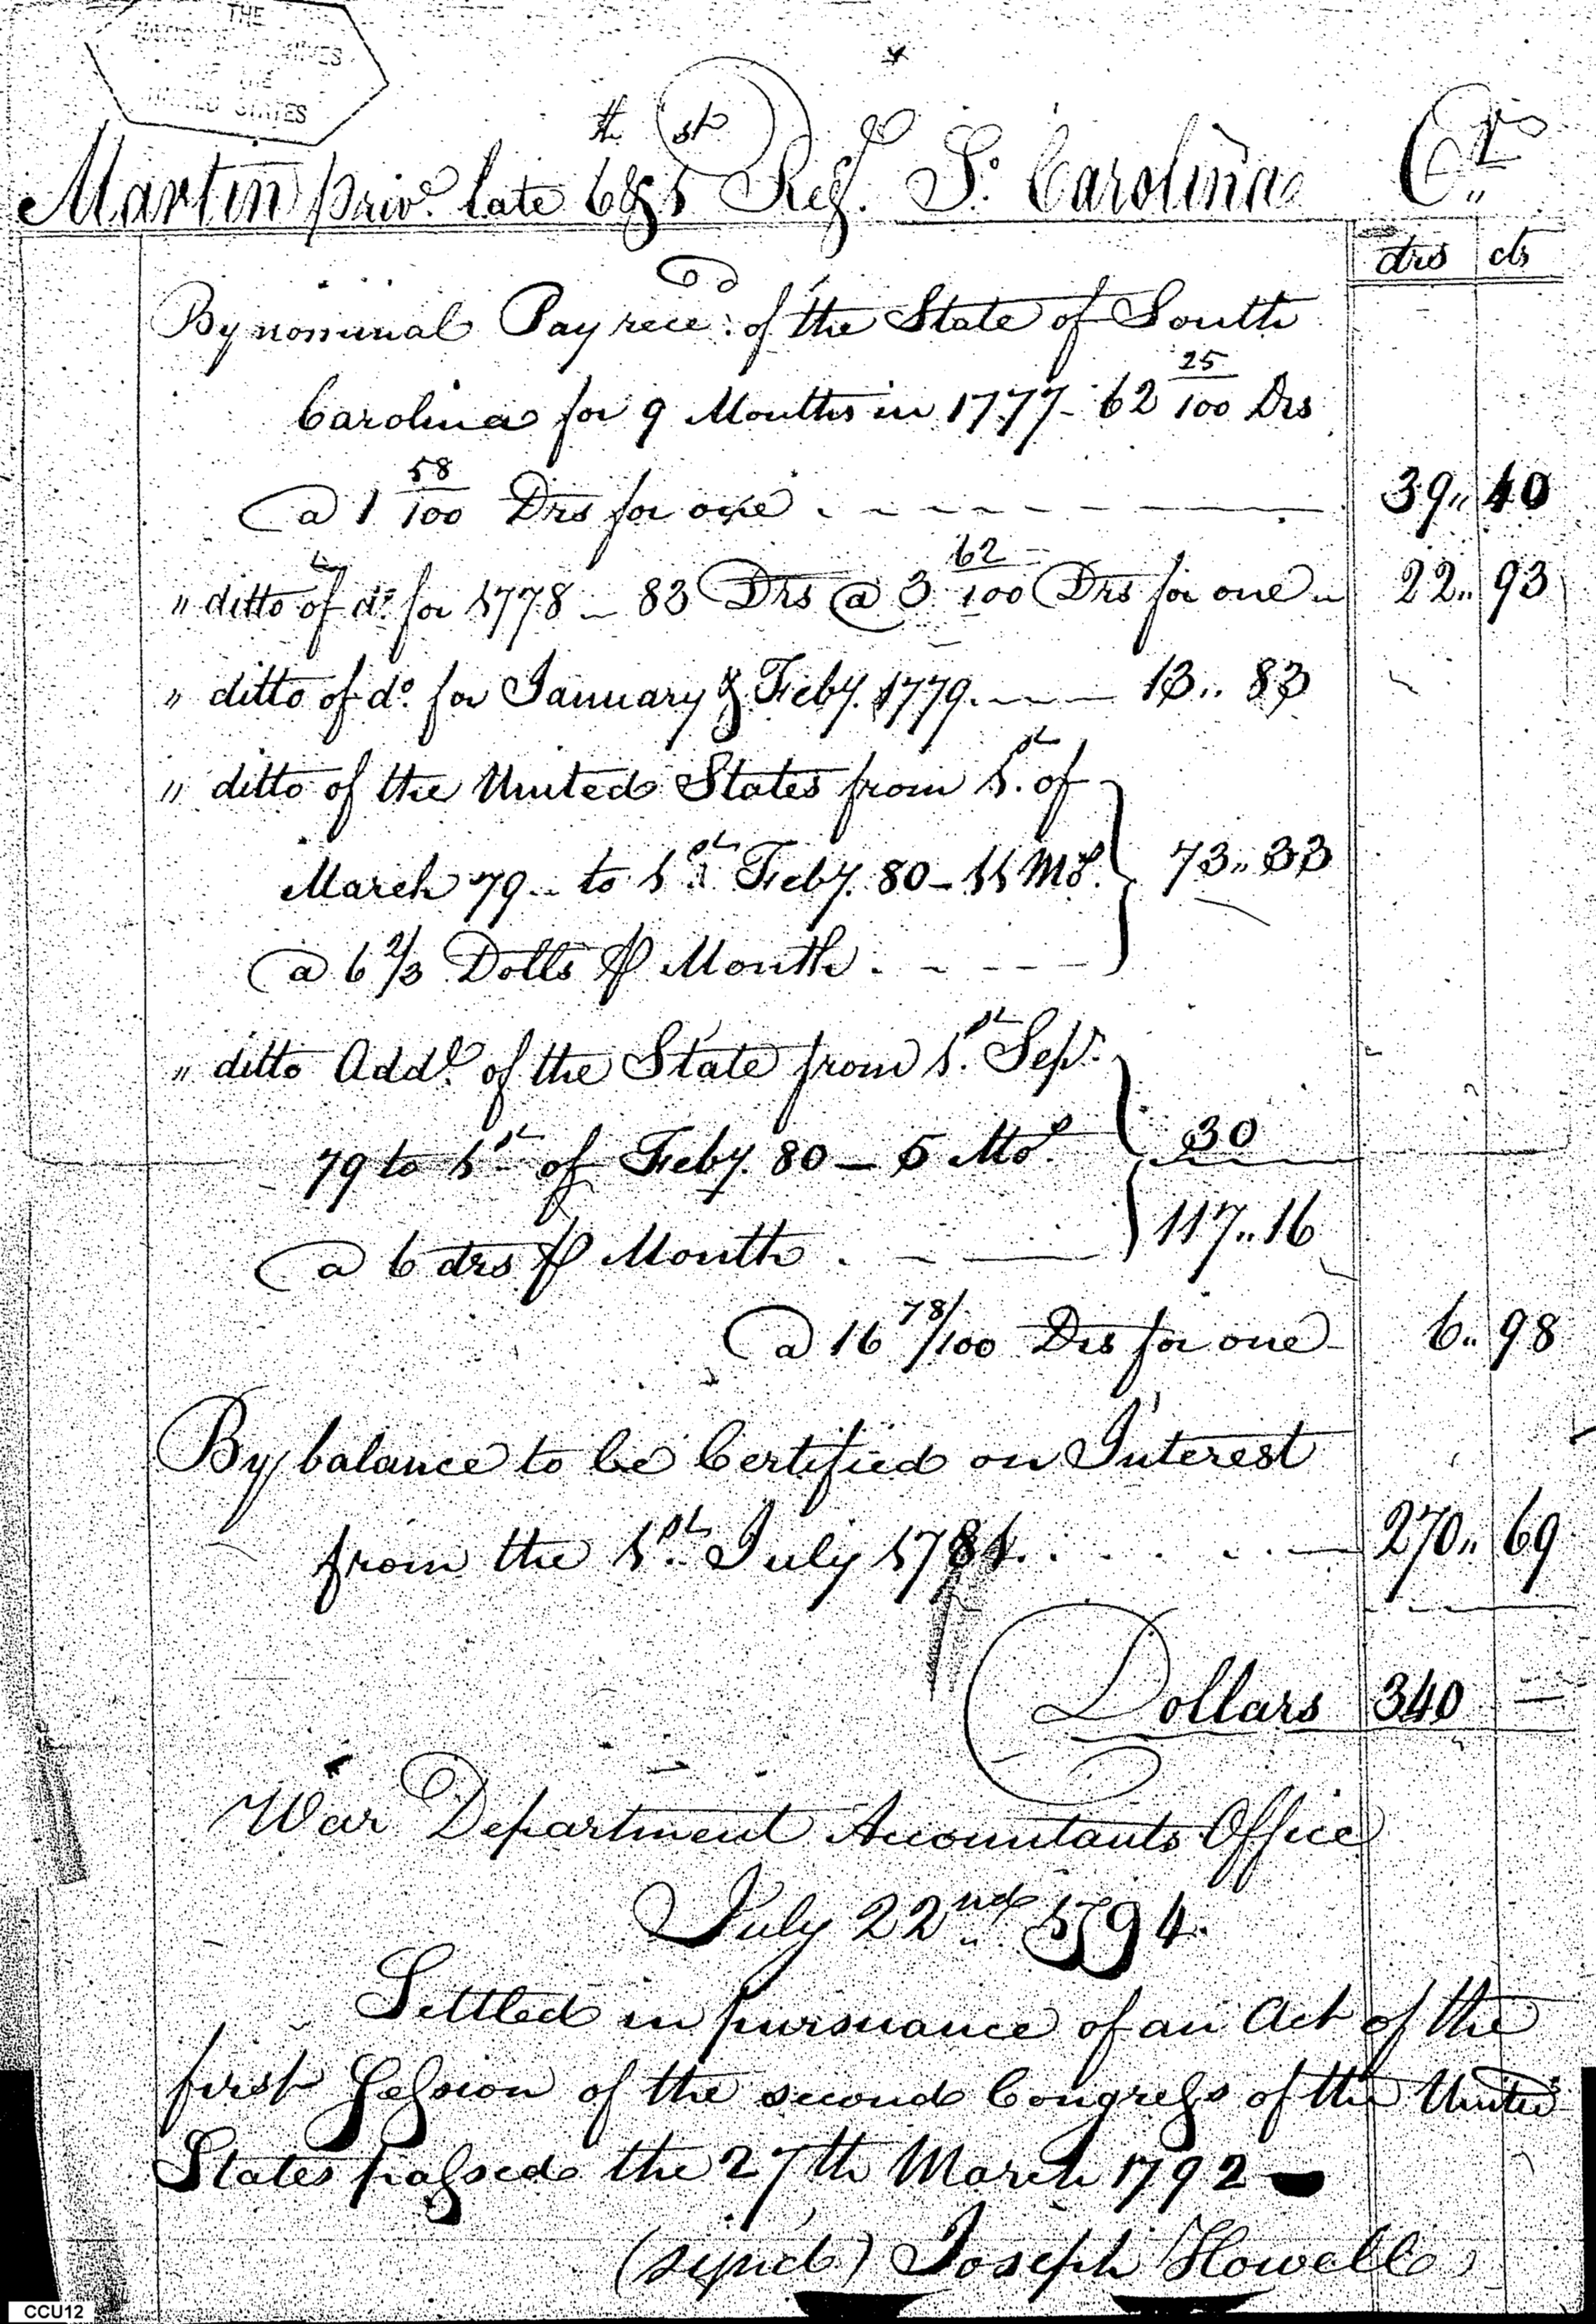 THE
NATIONAL ARCHIVES
OF THE
UNITED STATES
Martin priv.e late 6th & 1st Reg.t So. Carolina Cr.
drs cts
By nominal Pay rece.d of the State of South
Carolina for 9 Months in 1777 - 62 25/100 Drs
@ 1 58/100 Drs for one 39,, 40
,, ditto of do. for 1778 - 83 Drs @ 3 62/100 Drs for one 22,, 93
,, ditto of do. for January & Feby. 1779. 13,, 83
,, ditto of the United States from 1st of
March 79 - to 1st Feby. 80 - 11 Mos. 73,, 33
@ 6 2/3 Dolls ⅌ Month
,, ditto Addl. of the State from 1st Sepr.
79 to 1st of Feby. 80 - 5 Mos. 30
@ 6 drs ⅌ Month 117,, 16
@ 16 78/100 Drs for one 6,, 98
By balance to be Certified on Interest
from the 1st July 1781 270,, 69
Dollars 340 —
War Department Accountants Office
July 22nd 1794.
Settled in pursuance of an Act of the
first Session of the second Congress of the United
States passed the 27th March 1792 —
(signed) Joseph Howell
CCU12